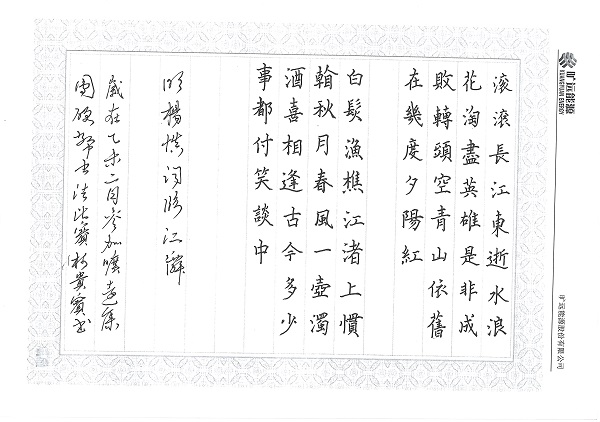 旷远能源
KUANGYUAN ENERGY
旷远能源股份有限公司
滚滚長江東逝水浪
花淘盡英雄是非成
敗轉頭空青山依舊
在幾度夕陽紅
白髮漁樵江渚上慣
翰秋月春風一壺濁
酒喜相逢古今多少
事都付笑談中
明楊慎词临江
歲在乙未二月參加曠遠集
團硬筆书法比賽 貴寶书